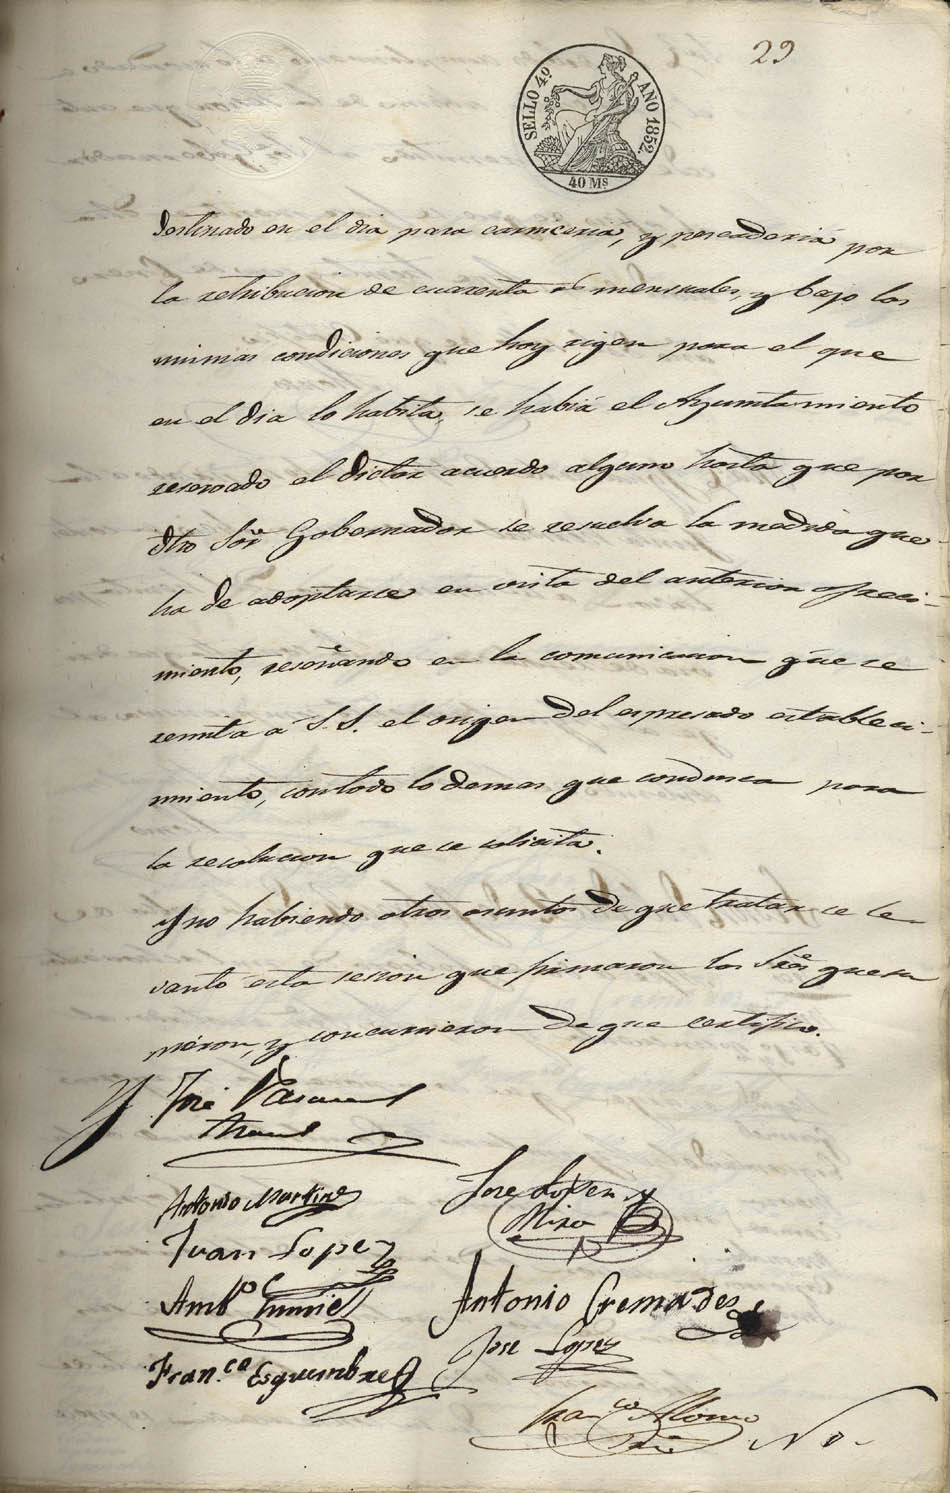 29
SELLO 4º AÑO 1852.
40 Ms
destinado en el dia para carniceria, y pescaderia por
la retribucion de cuarenta rs mensuales, y bajo las
mismas condiciones que hoy rigen para el que
en el dia lo habita, se habia el Ayuntamiento
reservado el dictar acuerdo alguno hasta que por
dho Sor Gobernador se resuelva la medida que
ha de adoptarse en vista del anterior ofreci-
miento, reseñando en la comunicacion que se
remita á S.S. el origen del espresado estableci-
miento, con todo lo demas que conduzca para
la resolucion que se solicita.
Y no habiendo otros asuntos de que tratar se le-
vantó esta sesion que firmaron los Sres que su
pieron, y concurrieron de que certifico.
José Pascual
Antonio Martinez
Jose Lopez y
Mira
Juan Lopez
Ambº
Antonio Cremades
Jose Lopez
Fran.co Esquembre
Franco Alonso